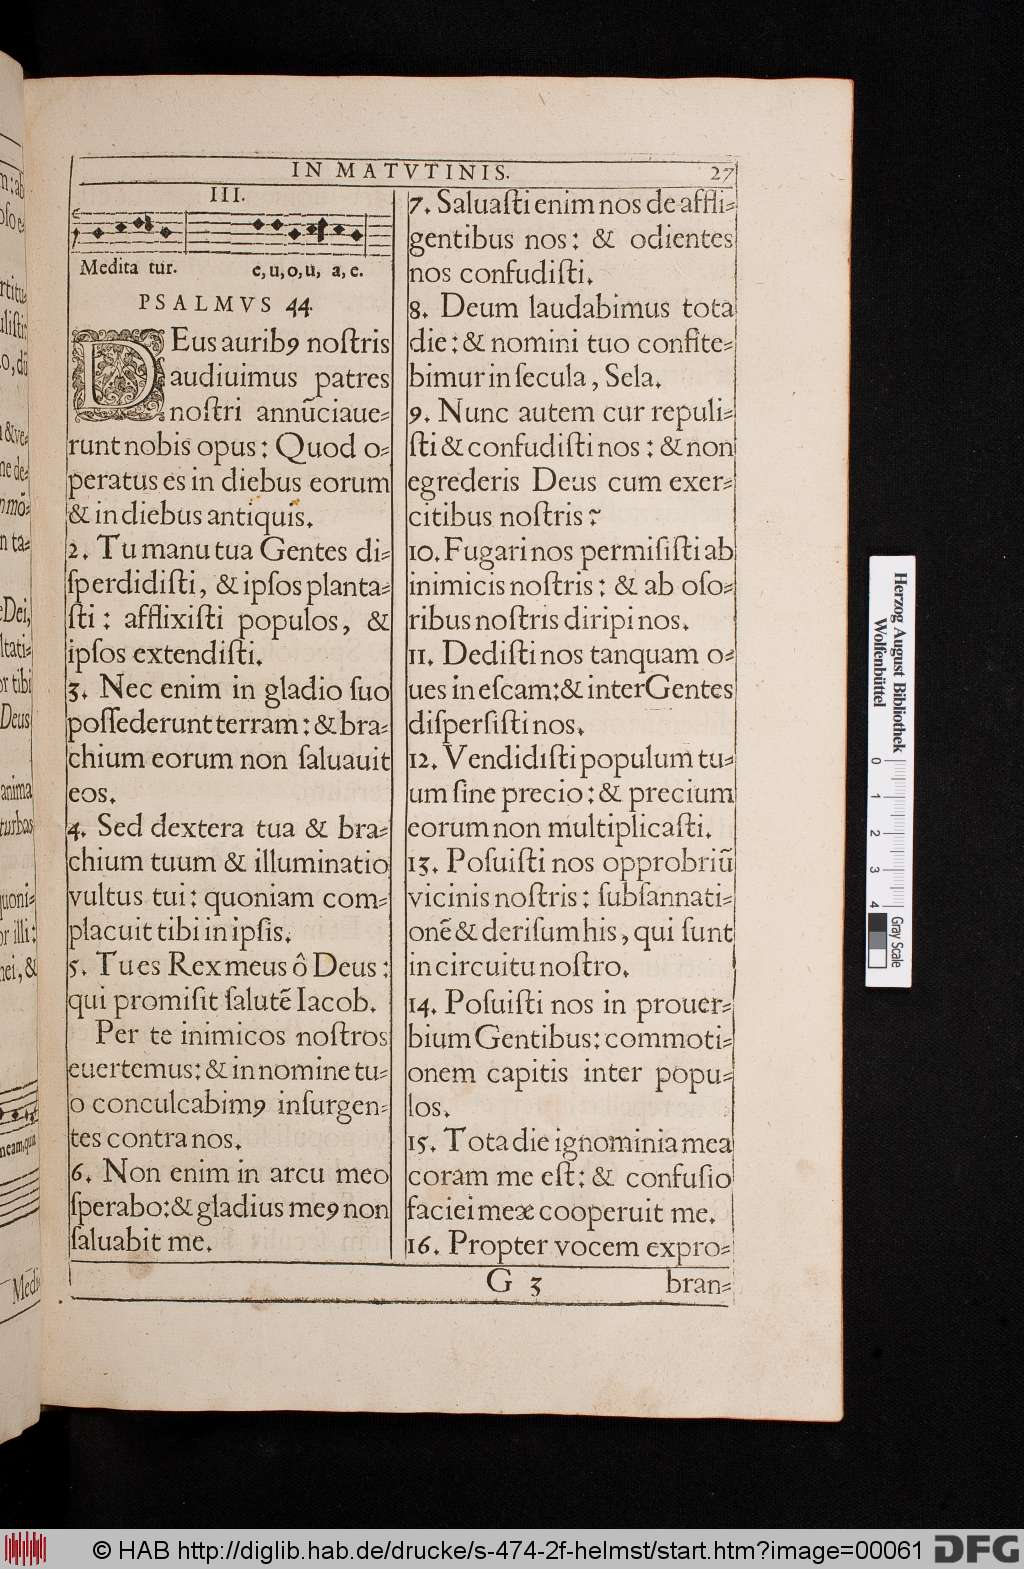 IN MATVTINIS.
27
III.
Medita tur. e, u, o, u, a, e.
PSALMVS 44.
DEus auribꝰ noſtris
audiuimus patres
noſtri annũciaue⸗
runt nobis opus: Quod o⸗
peratus es in diebus eorum
& in diebus antiquis.
2. Tu manu tua Gentes di⸗
ſperdidiſti, & ipſos planta⸗
ſti: afflixiſti populos, &
ipſos extendiſti.
3. Nec enim in gladio ſuo
poſſederunt terram: & bra⸗
chium eorum non ſaluauit
eos.
4. Sed dextera tua & bra⸗
chium tuum & illuminatio
vultus tui: quoniam com⸗
placuit tibi in ipſis.
5. Tu es Rex meus ô Deus:
qui promiſit ſalutẽ Iacob.
Per te inimicos noſtros
euertemus: & in nomine tu⸗
o conculcabimꝰ inſurgen⸗
tes contra nos.
6. Non enim in arcu meo
ſperabo: & gladius meꝰ non
ſaluabit me.
7. Saluaſti enim nos de affli⸗
gentibus nos: & odientes
nos confudiſti.
8. Deum laudabimus tota
die: & nomini tuo confite⸗
bimur in ſecula, Sela.
9. Nunc autem cur repuli⸗
ſti & confudiſti nos: & non
egrederis Deus cum exer⸗
citibus noſtris?
10. Fugari nos permiſiſti ab
inimicis noſtris: & ab oſo⸗
ribus noſtris diripi nos.
11. Dediſti nos tanquam o⸗
ues in eſcam: & inter Gentes
diſperſiſti nos.
12. Vendidiſti populum tu⸗
um ſine precio: & precium
eorum non multiplicaſti.
13. Poſuiſti nos opprobriũ
vicinis noſtris: ſubſannati⸗
onẽ & deriſum his, qui ſunt
in circuitu noſtro.
14. Poſuiſti nos in prouer⸗
bium Gentibus: commoti⸗
onem capitis inter popu⸗
los.
15. Tota die ignominia mea
coram me eſt: & confuſio
faciei meæ cooperuit me.
16. Propter vocem expro⸗
G 3
bran⸗
Herzog August Bibliothek
Wolfenbüttel
0 1 2 3 4
Gray Scale
© HAB http://diglib.hab.de/drucke/s-474-2f-helmst/start.htm?image=00061
DFG